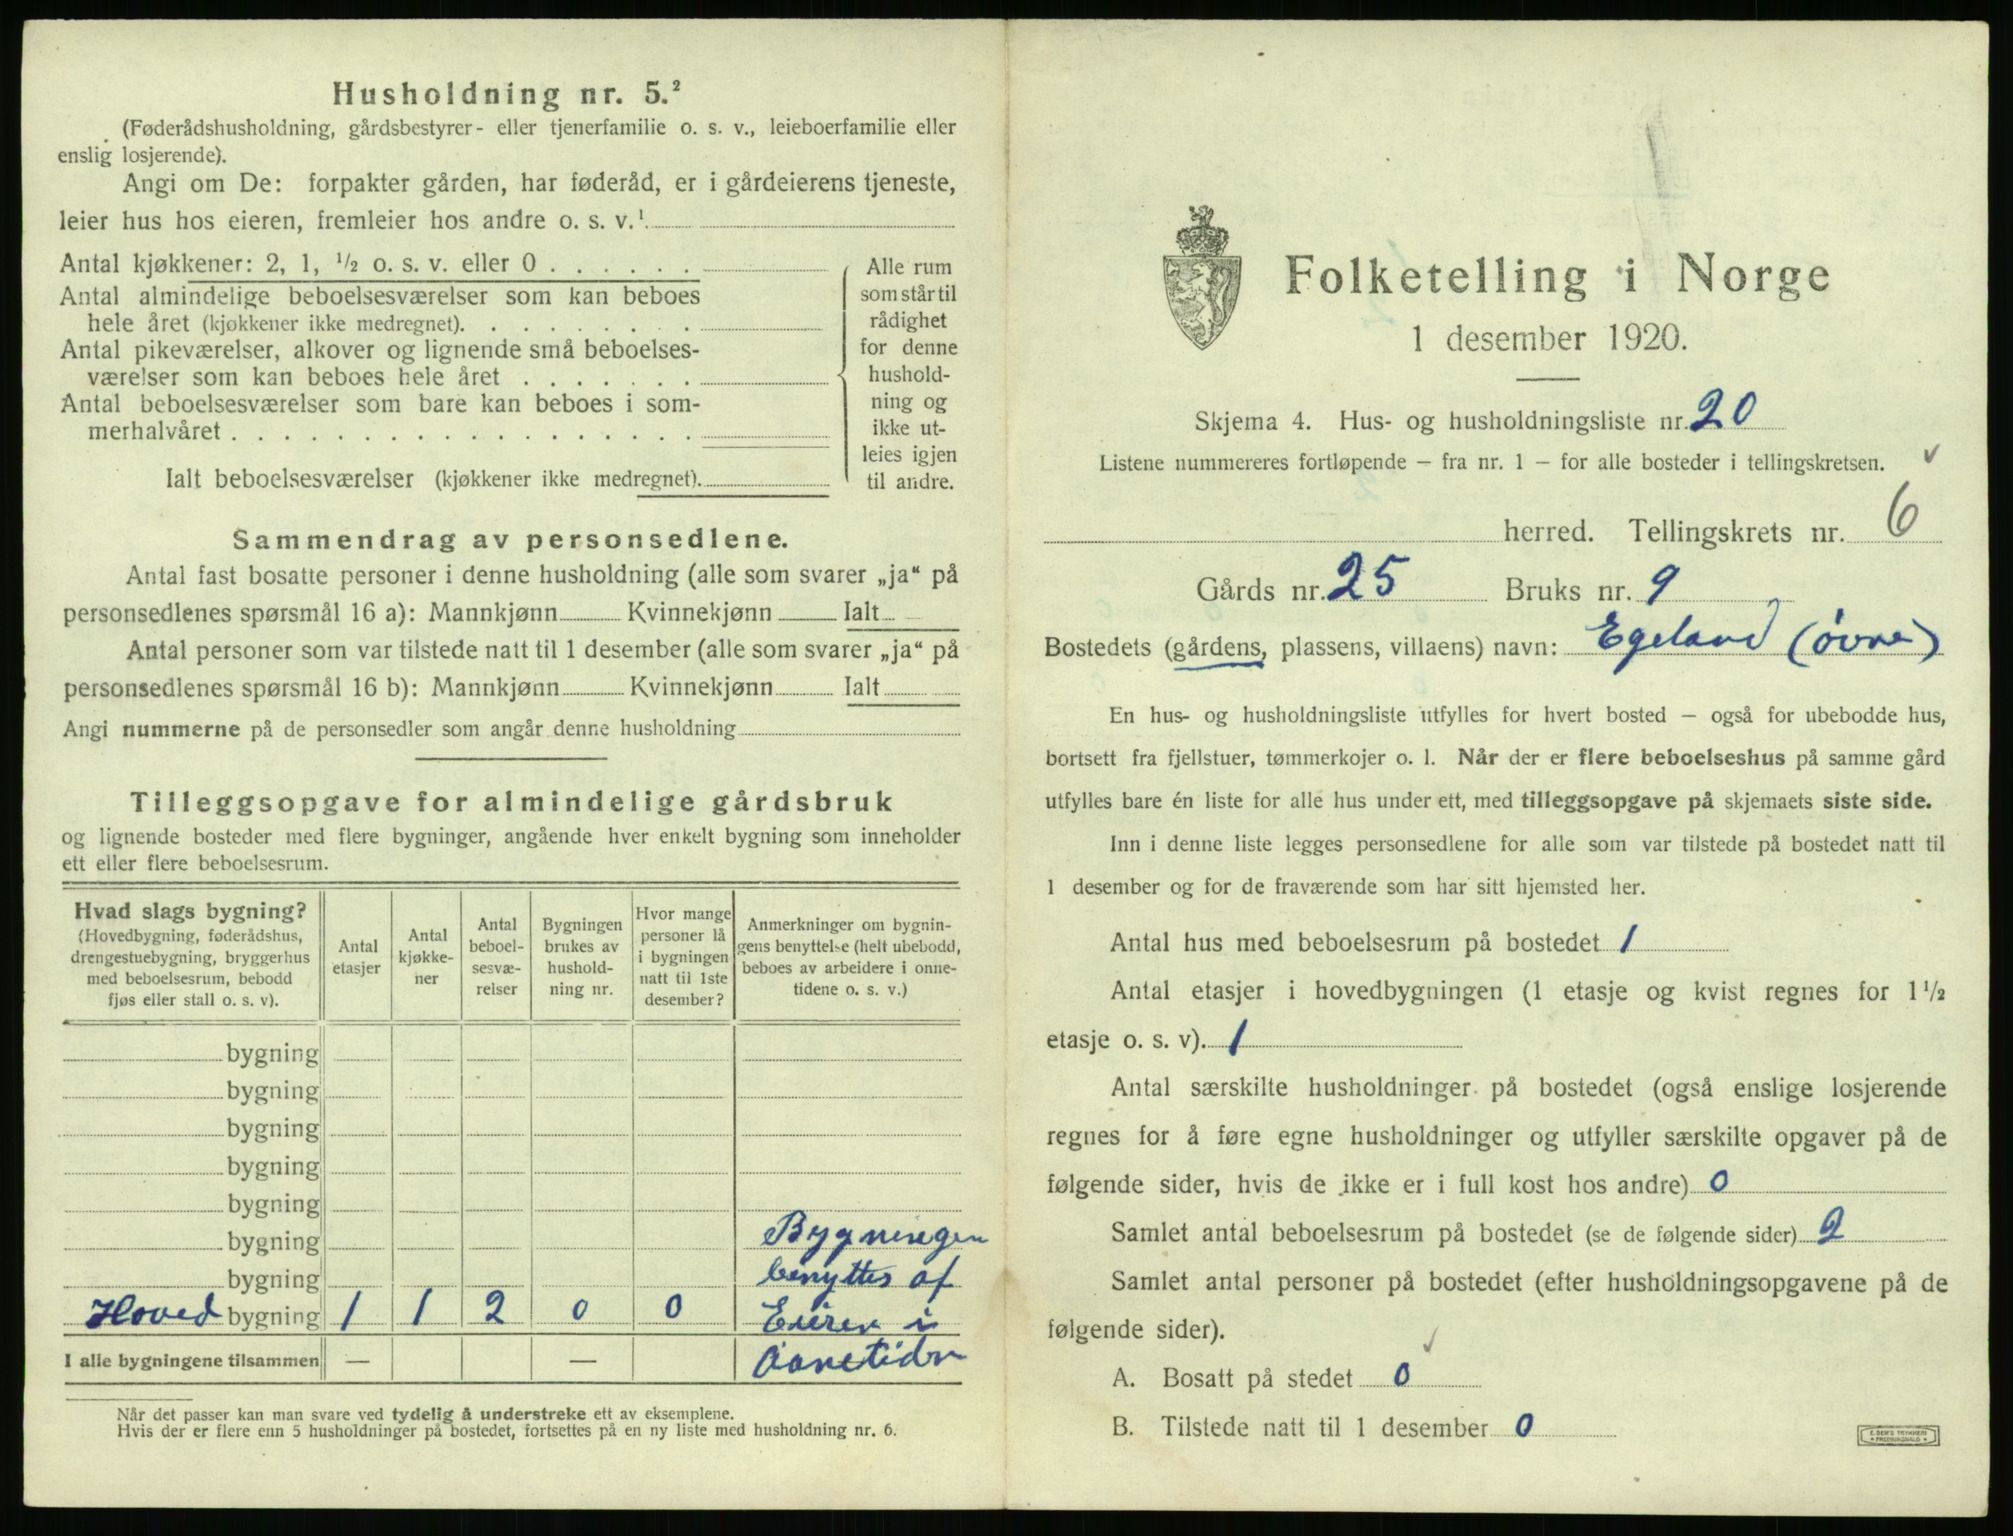 Husholdning nr. 5.²
(Føderådshusholdning, gårdsbestyrer- eller tjenerfamilie o. s. v., leieboerfamilie eller
enslig losjerende).
Angi om De: forpakter gården, har føderåd, er i gårdeierens tjeneste,
leier hus hos eieren, fremleier hos andre o. s. v.¹
Antal kjøkkener: 2, 1, ½ o. s. v. eller 0 . . . . . .
Antal almindelige beboelsesværelser som kan beboes
hele året (kjøkkener ikke medregnet). . . . . . . . .
Antal pikeværelser, alkover og lignende små beboelses-
værelser som kan beboes hele året . . . . . . .
Antal beboelsesværelser som bare kan beboes i som-
merhalvåret . . . . . . . . . . . . . . . . . .
Ialt beboelsesværelser (kjøkkener ikke medregnet).
Alle rum
som står til
rådighet
for denne
hushold-
ning og
ikke ut-
leies igjen
til andre.
Sammendrag av personsedlene.
Antal fast bosatte personer i denne husholdning (alle som svarer „ja“ på
personsedlenes spørsmål 16 a): Mannkjønn Kvinnekjønn Ialt
Antal personer som var tilstede natt til 1 desember (alle som svarer „ja“ på
personsedlenes spørsmål 16 b): Mannkjønn Kvinnekjønn Ialt
Angi nummerne på de personsedler som angår denne husholdning
Tilleggsopgave for almindelige gårdsbruk
og lignende bosteder med flere bygninger, angående hver enkelt bygning som inneholder
ett eller flere beboelsesrum.
Hvad slags bygning?
(Hovedbygning, føderådshus,
drengestuebygning, bryggerhus
med beboelsesrum, bebodd
fjøs eller stall o. s. v).
Antal
etasjer
Antal
kjøkke-
ner
Antal
beboel-
sesvæ-
relser
Bygningen
brukes av
hushold-
ning nr.
Hvor mange
personer lå
i bygningen
natt til 1ste
desember?
Anmerkninger om bygnin-
gens benyttelse (helt ubebodd,
beboes av arbeidere i onne-
tidene o. s. v.)
bygning
bygning
bygning
bygning
bygning
bygning Bygningen
bygning benyttes af
Hoved bygning 1 1 2 0 0 Eieren i
I alle bygningene tilsammen — — Aanetiden
Når det passer kan man svare ved tydelig å understreke ett av eksemplene.
Hvis der er flere enn 5 husholdninger på bostedet, fortsettes på en ny liste med husholdning nr. 6.
Folketelling i Norge
1 desember 1920.
Skjema 4. Hus- og husholdningsliste nr. 20
Listene nummereres fortløpende – fra nr. 1 – for alle bosteder i tellingskretsen.
herred. Tellingskrets nr. 6
Gårds nr. 25 Bruks nr. 9
Bostedets (gårdens, plassens, villaens) navn: Egeland (øvre)
En hus- og husholdningsliste utfylles for hvert bosted – også for ubebodde hus,
bortsett fra fjellstuer, tømmerkojer o. l. Når der er flere beboelseshus på samme gård
utfylles bare én liste for alle hus under ett, med tilleggsopgave på skjemaets siste side.
Inn i denne liste legges personsedlene for alle som var tilstede på bostedet natt til
1 desember og for de fraværende som har sitt hjemsted her.
Antal hus med beboelsesrum på bostedet 1
Antal etasjer i hovedbygningen (1 etasje og kvist regnes for 1½
etasje o. s. v). 1
Antal særskilte husholdninger på bostedet (også enslige losjerende
regnes for å føre egne husholdninger og utfyller særskilte opgaver på de
følgende sider, hvis de ikke er i full kost hos andre) 0
Samlet antal beboelsesrum på bostedet (se de følgende sider) 2
Samlet antal personer på bostedet (efter husholdningsopgavene på de
følgende sider).
A. Bosatt på stedet 0
B. Tilstede natt til 1 desember 0